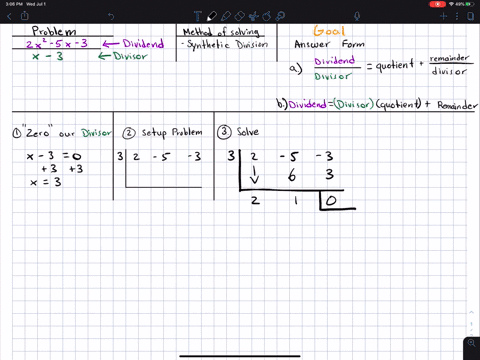 3:08 PM Wed Jul 1
Problem
2x² -5x -3 ← Dividend
x - 3 ← Divisor
Method of solving
- Synthetic Division
Goal
Answer Form
a) Dividend/Divisor = quotient + remainder/divisor
b.) Dividend = (Divisor)(quotient) + Remainder
① "Zero" our Divisor
x - 3 = 0
+3 +3
x = 3
② Setup Problem
3 2 -5 -3
③ Solve
3 2 -5 -3
↓ 6 3
2 1 0